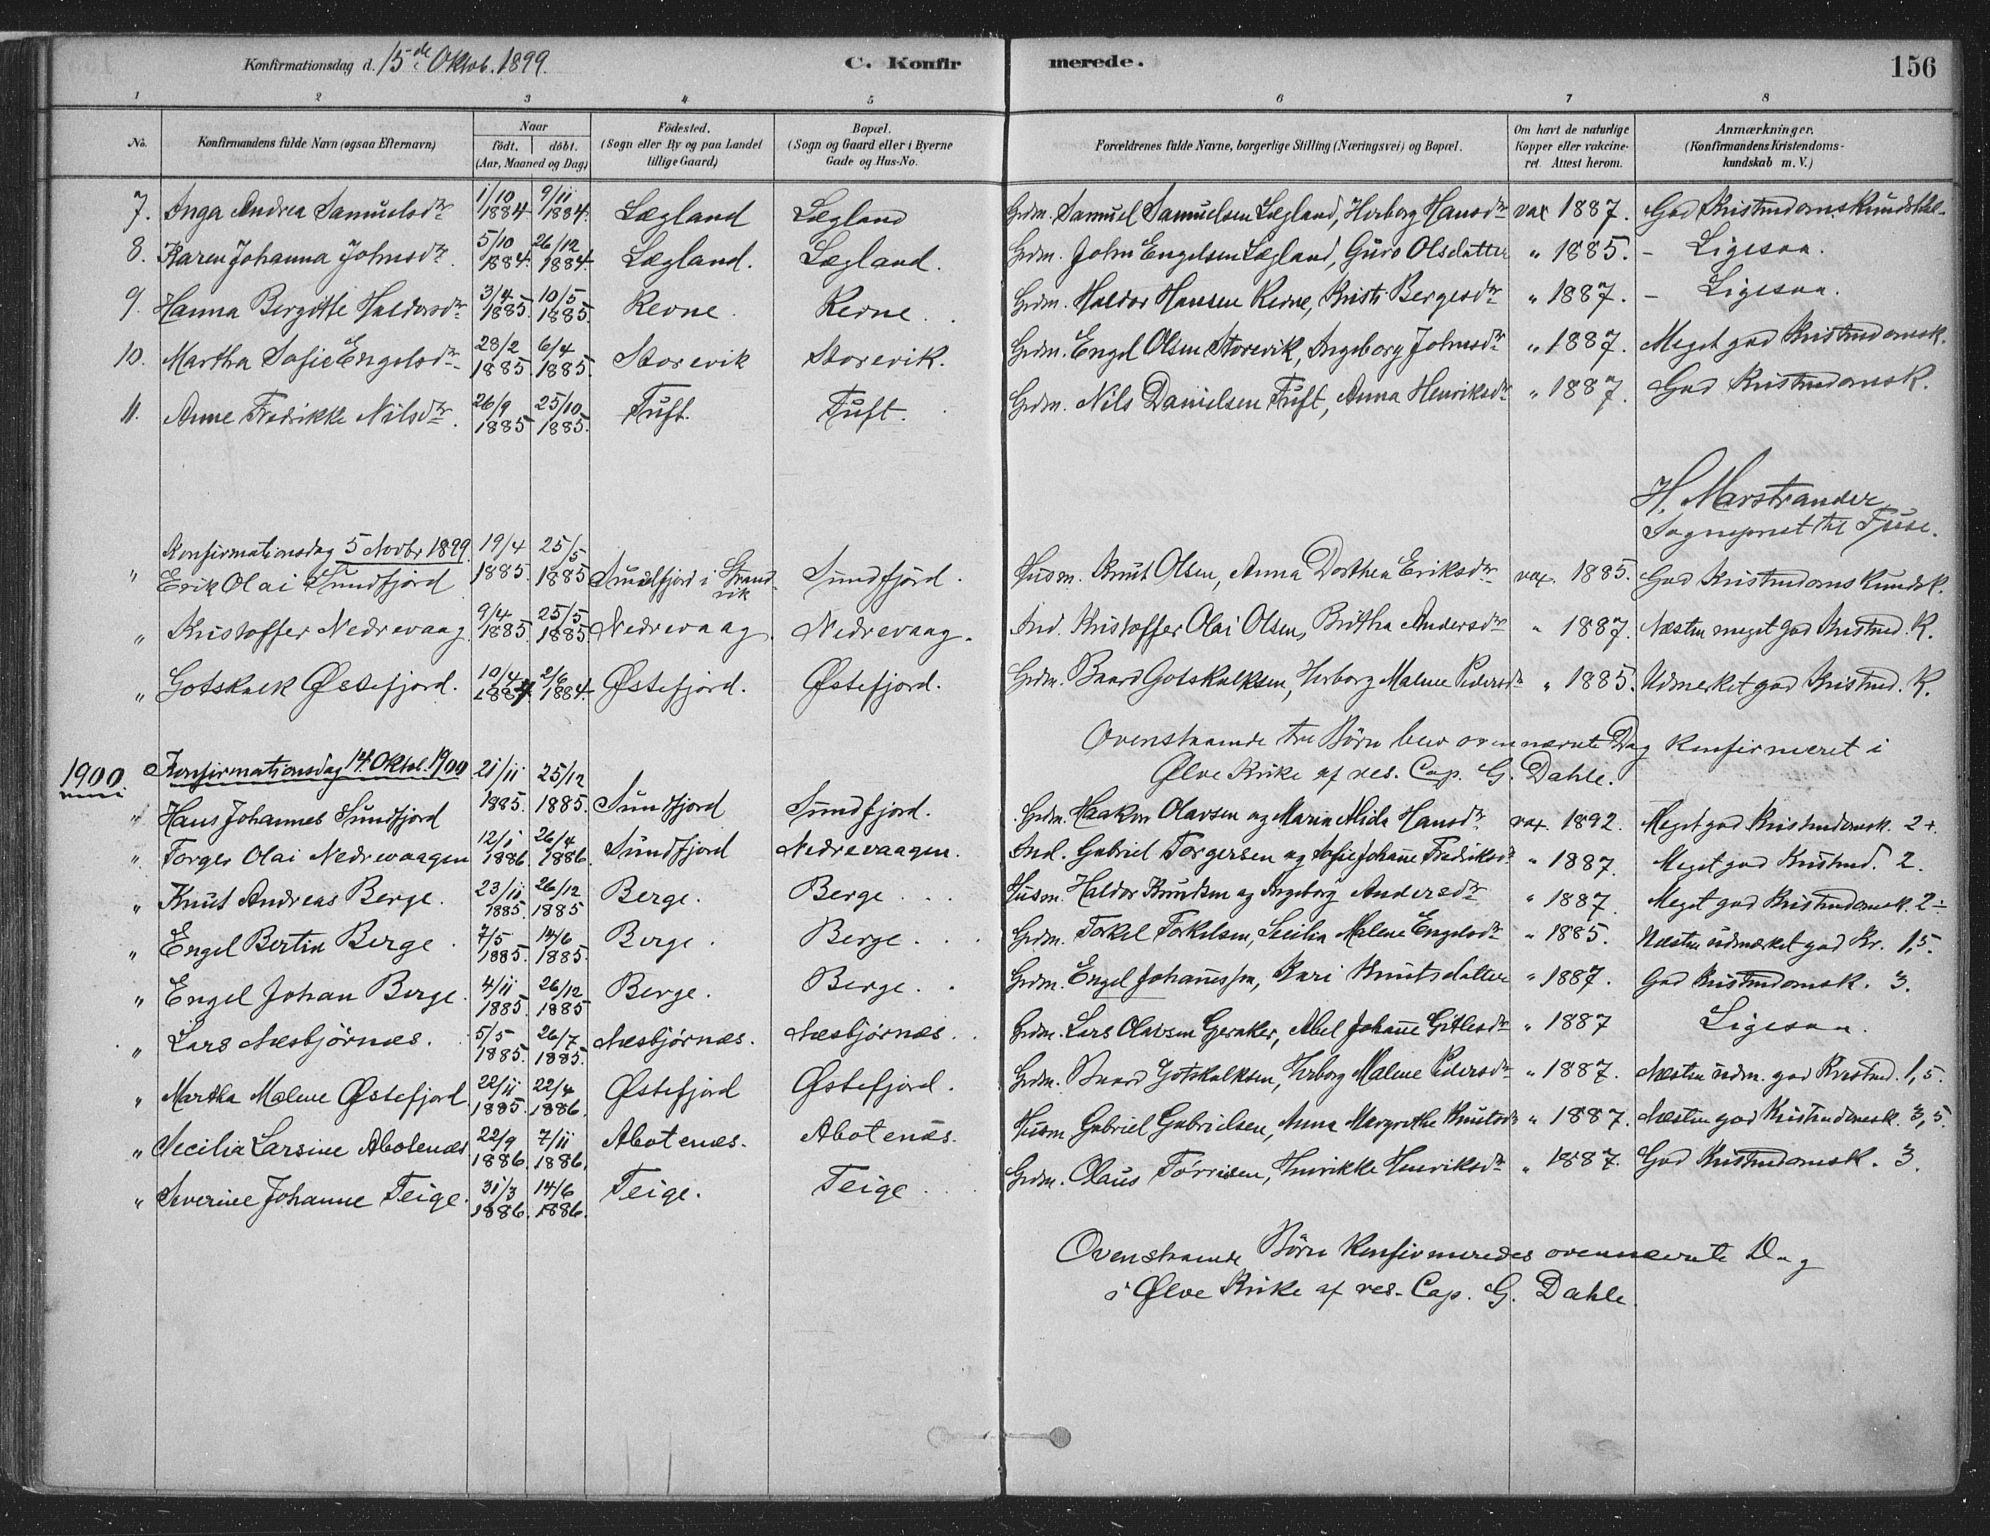 Konfirmationsdag d. 15de Oktob. 1899. C. Konfirmerede. 156
1 2 3 4 5 6 7 8
No. Konfirmandens fulde Navn (ogsaa Efternavn) Naar født. døbt. (Aar, Maaned og Dag) Fødested. (Sogn eller By og paa Landet tillige Gaard) Bopæl. (Sogn og Gaard eller i Byerne Gade og Hus-No. Forældrenes fulde Navne, borgerlige Stilling (Næringsvei) og Bopæl. Om havt de naturlige Kopper eller vakcineret. Attest herom. Anmærkninger. (Konfirmandens Kristendomskundskab m. V.)
7. Inga Andrea Samuelsdtr 1/10 1884. 9/11 1884. Lægland Lægland Grdm. Samuel Samuelsen Lægland, Herborg Hansdtr vax 1887. God Kristendomskundskab.
8. Karen Johanna Johnsdtr. 5/10 1884. 26/12 1884. Lægland. Lægland. Grdm. John Engelsen Lægland, Guro Olsdatter " 1885. - Ligesaa.
9. Hanna Bergitte Haldorsdtr 3/4 1885. 10/5 1885. Revne. Revne. Grdm. Haldor Hansen Revne, Kristi Bergesdtr " 1887. - Ligesaa.
10. Martha Sofie Engelsdtr. 28/2 1885. 6/4 1885. Storevik Storevik. Grdm. Engel Olsen Storevik, Ingeborg Johnsdtr " 1887. Meget god Kristendomsk.
11. Anne Fredrikke Nilsdtr. 26/9 1885 25/10 1885. Tuft. Tuft. Grdm. Nils Danielsen Tuft, Anna Henriksdtr " 1887. God Kristendomsk.
H. Marstrander
Sogneprest til Fuse.
Konfirmationsdag 5 Novbr 1899
" Erik Olai Sundfjord 19/4 1885. 25/5 1885 Sundfjord i Strandvik Sundfjord. Husm. Knut Olsen, Anna Dorthea Eriksdtr vax. 1885. God Kristendomskundsk.
" Kristoffer Nedrevaag 9/4 1885. 25/5 1885 Nedrevaag. Nedrevaag. Ind. Kristoffer Olai Olsen, Britha Andersdtr " 1887. Næsten meget god Kristend. K.
" Gotskalk Østefjord. 10/4 1884 2/6 1884. Østefjord. Østefjord. Grdm. Baard Gotskalksen, Herborg Malene Pedersdtr " 1885. Udmerket god Kristend. K.
Ovenstaaende tre Børn blev ovennævnte Dag konfirmeret i
Ølve Kirke af res. Cap. G. Dahle.
1900. Konfirmationsdag 14. Oktob. 1900
" Hans Johannes Sundfjord 21/11 1885. 25/12 1885. Sundfjord Sundfjord. Grdm. Haakon Olavsen og Maria Alida Hansdtr vax. 1892. Meget god Kristendomsk. 2+.
" Torger Olai Nedrevaagen 12/1 1886. 26/4 1886. Sundfjord Nedrevaagen. Ind. Gabriel Torgersen og Sofie Johanne Fredriksdtr " 1887. Meget god Kristend. 2.
" Knut Andreas Berge. 23/11 1885. 26/12 1885 Berge. Berge. Husm. Haldor Knudsen og Ingeborg Andersdtr " 1887. Meget god Kristendomsk. 2÷
" Engel Bertin Berge. 7/5 1885. 14/6 1885. Berge. Berge. Grdm. Torkel Torkelsen, Secilia Malene Engelsdtr " 1885. Næsten udmærket god Kr. 1,5.
" Engel Johan Berge. 4/11 1885. 26/12 1885 Berge. Berge. Grdm. Engel Johannessen, Kari Knutsdatter " 1887. God Kristendomsk. 3.
" Lars Næsbjørnæs. 5/5 1885. 26/7 1885. Næsbjørnæs. Næsbjørnæs. Grdm. Lars Olavsen Geraker, Abel Johanne Gitlesdtr " 1887 Ligesaa.
" Martha Malene Østefjord 22/11 1885 22/4 1886. Østefjord Østefjord. Grdm. Baard Gotskalksen, Herborg Malene Pedersdtr " 1887. Næsten udm. god Kristend. 1,5.
" Secilia Larsine Abotenæs 22/9 1886. 7/11 1886. Abotenæs. Abotenæs. Husm Gabriel Gabrielsen, Anna Margrethe Knutsdtr " 1887. Næsten god Kristendomsk. 3,5.
" Severine Johanne Teige. 31/3 1886. 14/6 1886. Teige. Teige. Grdm. Olaus Tørrisen, Henrikke Henriksdtr " 1887. God Kristendomsk. 3.
Ovenstaaende Børn konfirmeredes ovennævnte Dag
i Ølve Kirke af res. Cap. G. Dahle.